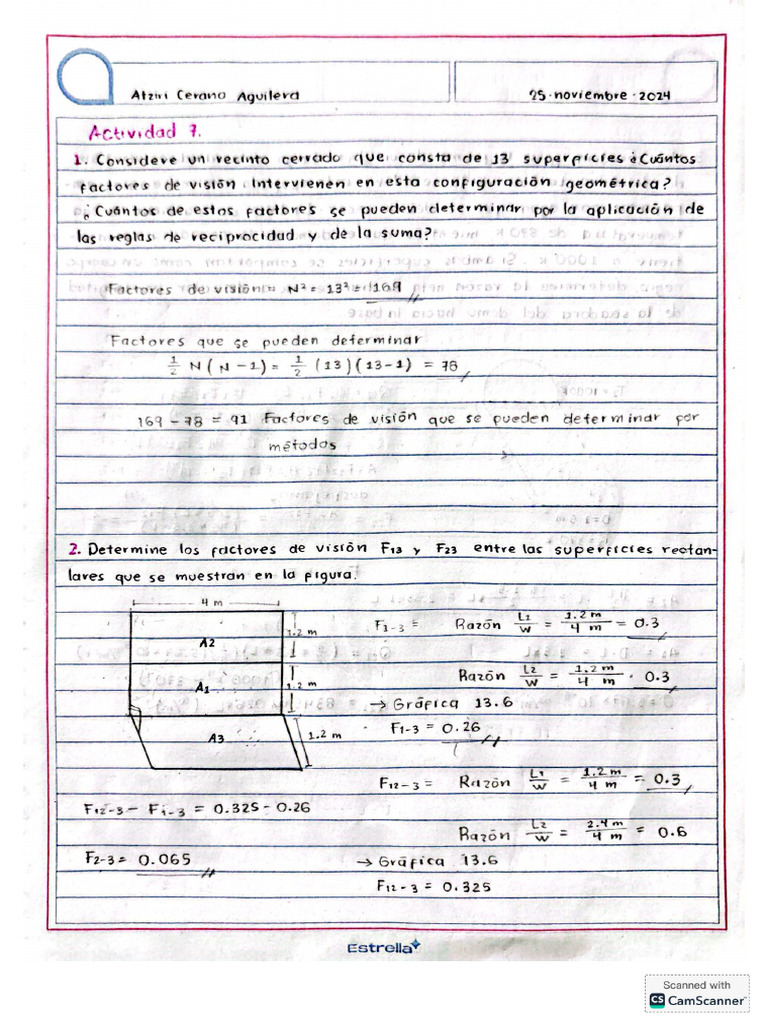 Atziri Cerano Aguilera
25·noviembre·2024
Actividad 7.
1. Considere un recinto cerrado que consta de 13 superficies ¿Cuántos
factores de visión intervienen en esta configuración geométrica?
¿Cuántos de estos factores se pueden determinar por la aplicación de
las reglas de reciprocidad y de la suma?
Factores de visión = N² = 13² = 169
Factores que se pueden determinar
1/2 N(N-1) = 1/2 (13)(13-1) = 78
169 - 78 = 91 Factores de visión que se pueden determinar por
métodos
2. Determine los factores de visión F13 y F23 entre las superficies rectan-
lares que se muestran en la figura.
4 m
A2
1.2 m
A1
1.2 m
A3
1.2 m
F1-3 = Razón L1/W = 1.2 m/4 m = 0.3
Razón L2/W = 1.2 m/4 m = 0.3
→ Gráfica 13.6
F1-3 = 0.26
F12-3 = Razón L1/W = 1.2 m/4 m = 0.3
F12-3 - F1-3 = 0.325 - 0.26
Razón L2/W = 2.4 m/4 m = 0.6
F2-3 = 0.065
→ Gráfica 13.6
F12-3 = 0.325
Estrella
Scanned with
CS CamScanner